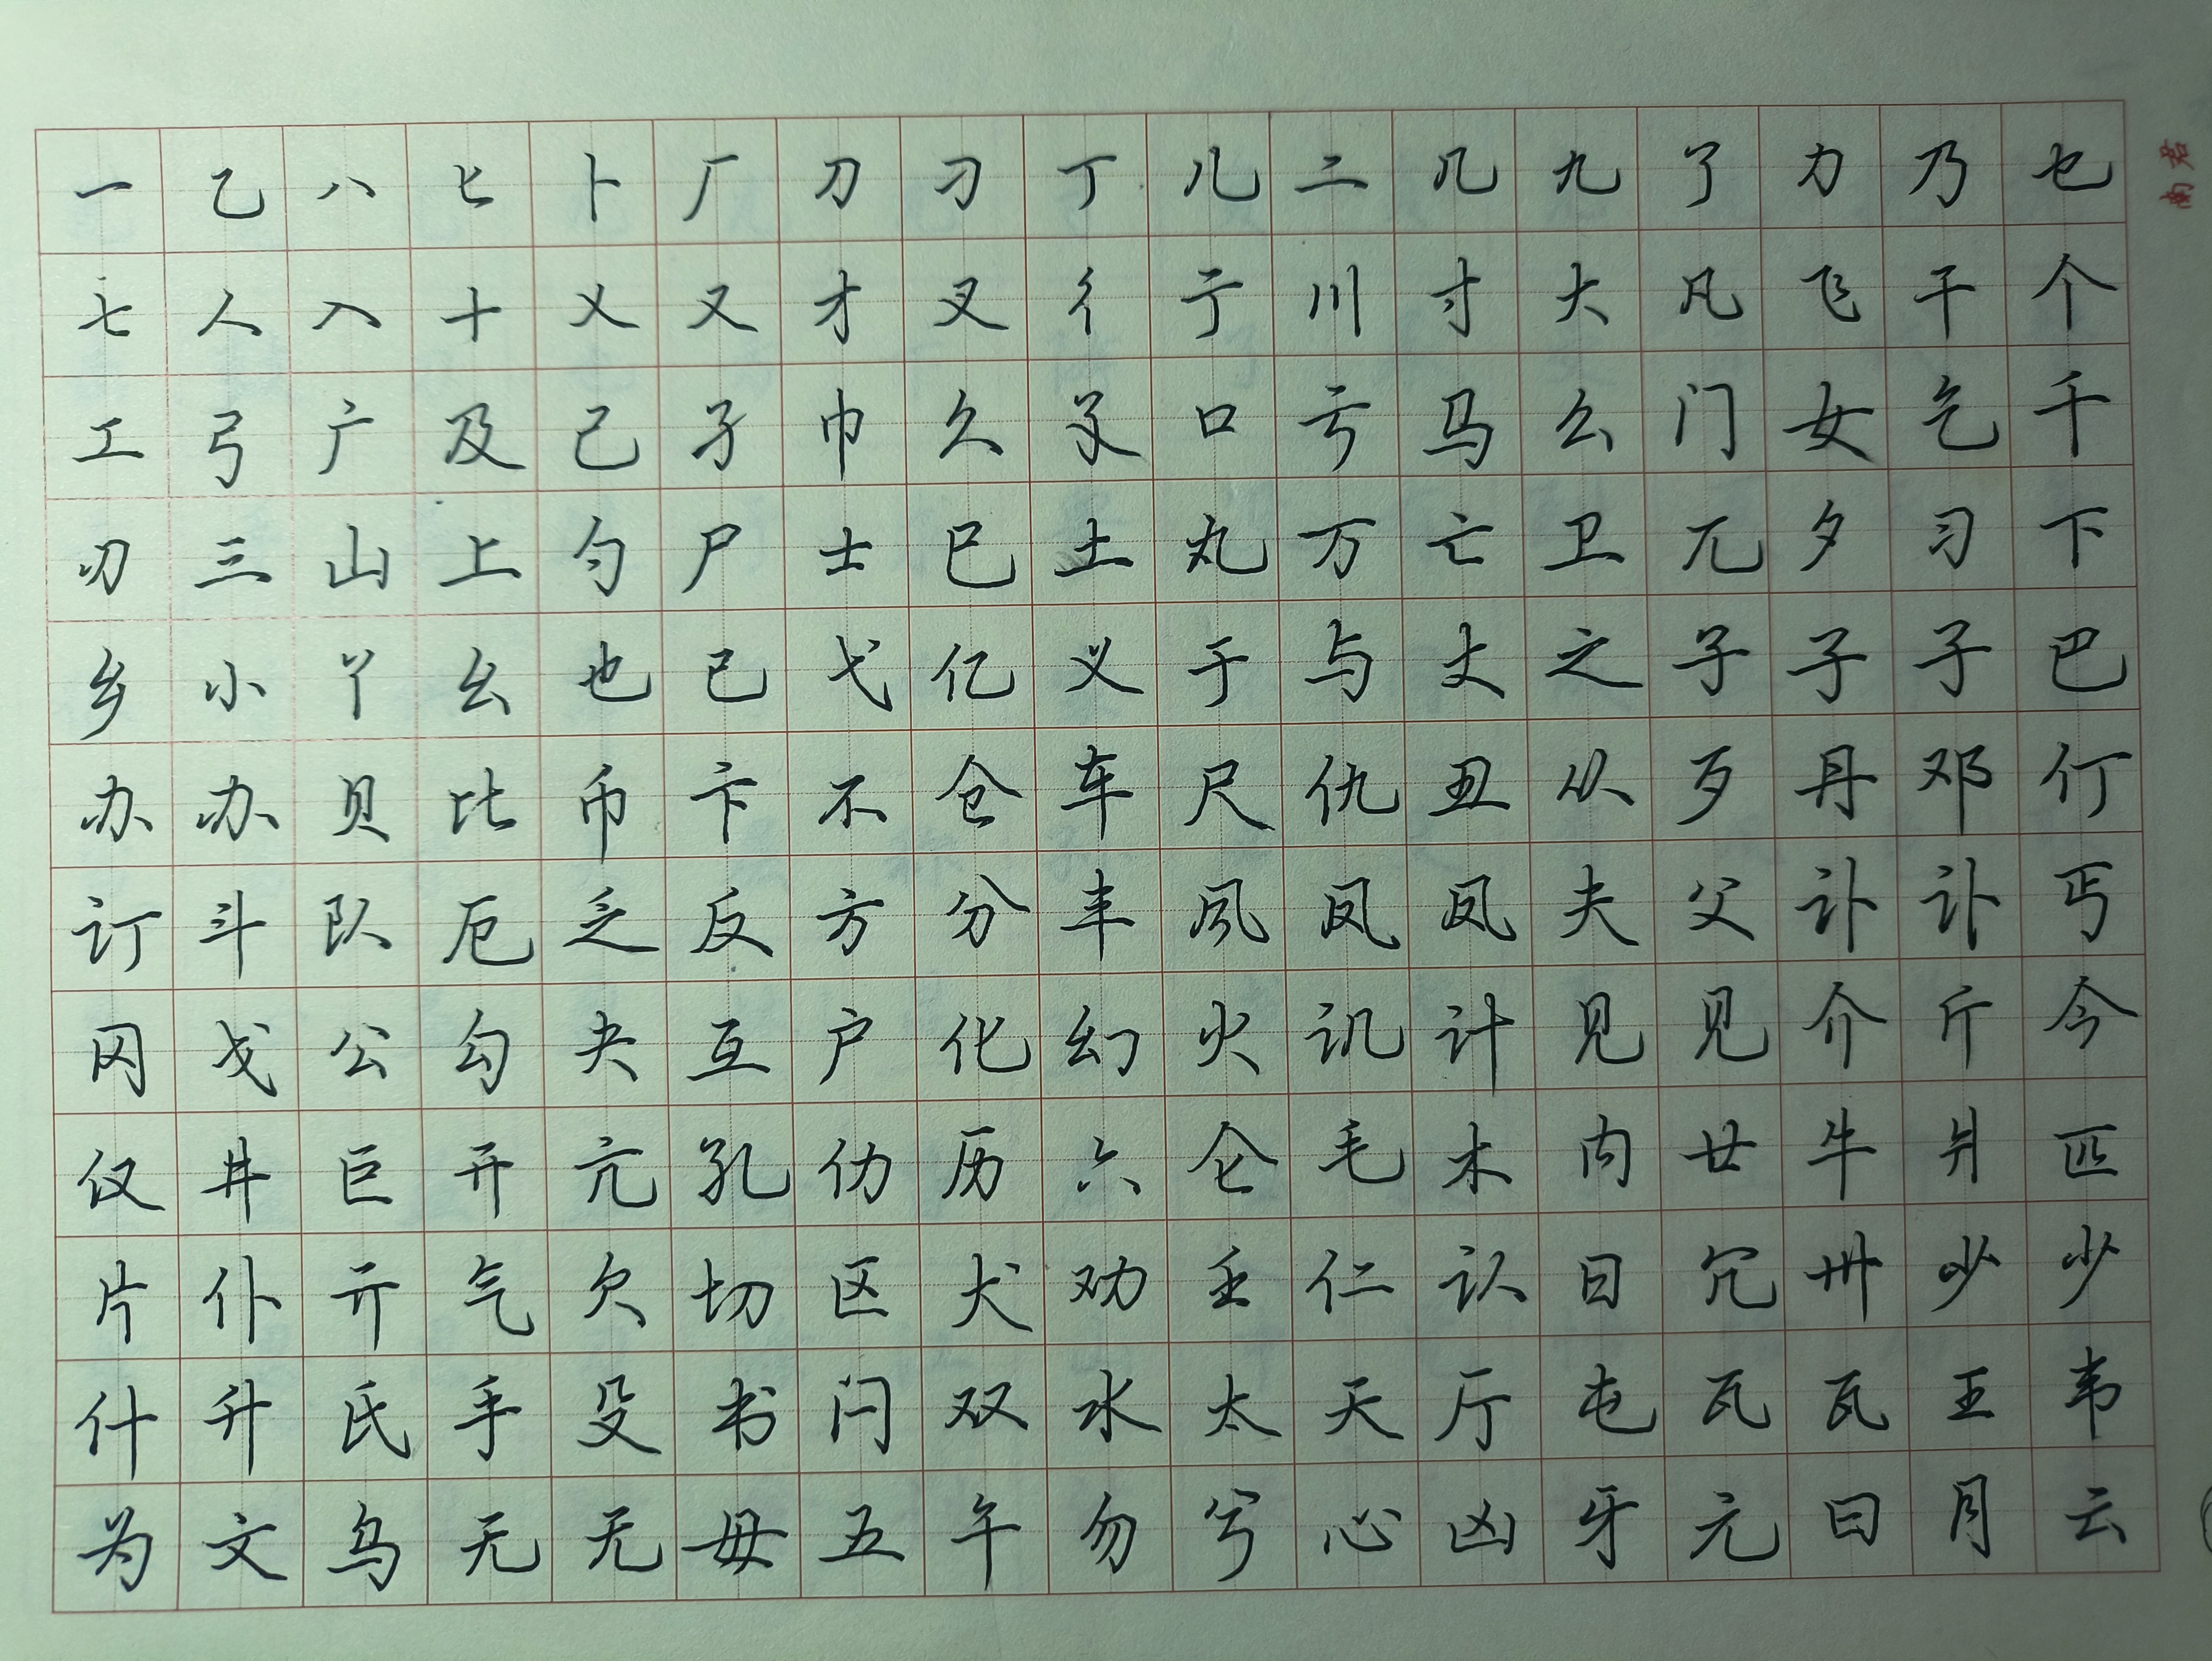 一乙八匕卜厂刀刁丁儿二几九了力乃乜
七人入十乂又才叉彳亍川寸大凡飞干个
工弓广及己孑巾久孓口亏马么门女乞千
刃三山上勺尸士巳土丸万亡卫兀夕习下
乡小丫幺也已弋亿义于与丈之子子子巴
办办贝比币卞不仓车尺仇丑从歹丹邓仃
订斗队厄乏反方分丰凤凤夫父讣讣丐
冈戈公勾夬互户化幻火讥计见见介斤今
仅井巨开亢孔仂历六仑毛木内廿牛爿匹
片仆亓气欠切区犬劝壬仁认日冗卅少少
什升氏手殳书闩双水太天厅屯瓦瓦王韦
为文乌无无毋五午勿兮心凶牙元曰月云